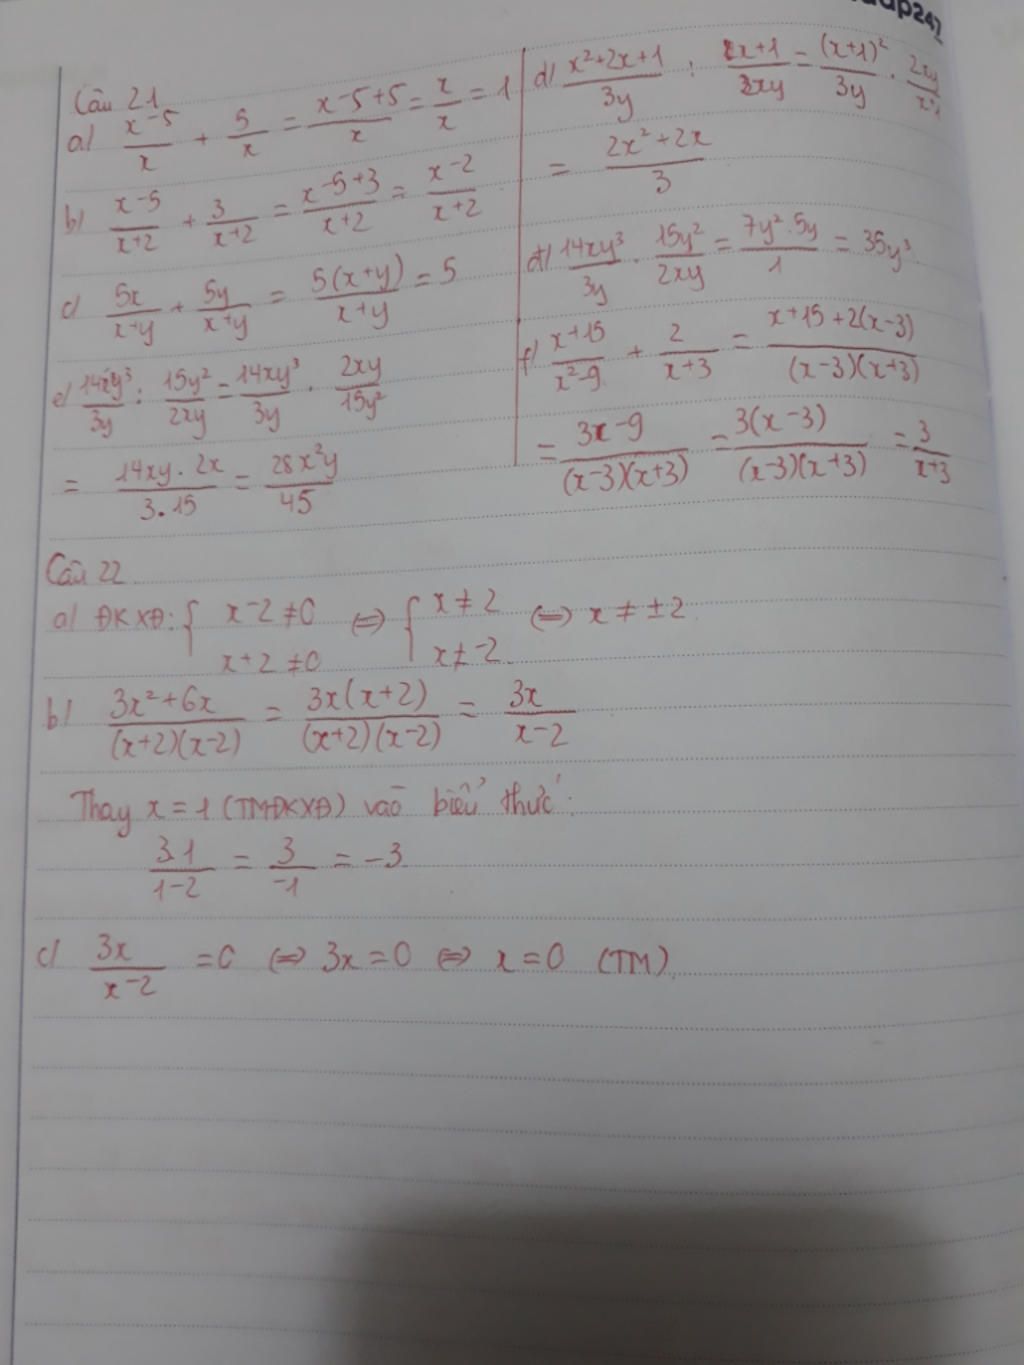 Câu 21
a) \frac{x-5}{x} + \frac{5}{x} = \frac{x-5+5}{x} = \frac{x}{x} = 1
b) \frac{x-5}{x+2} + \frac{3}{x+2} = \frac{x-5+3}{x+2} = \frac{x-2}{x+2}
c) \frac{5x}{x+y} + \frac{5y}{x+y} = \frac{5(x+y)}{x+y} = 5
e) \frac{14xy³}{3y} : \frac{15y²}{2xy} = \frac{14xy³}{3y} . \frac{2xy}{15y²}
= \frac{14xy.2x}{3.15} = \frac{28x²y}{45}
d) \frac{x²+2x+1}{3y} : \frac{x+1}{2xy} = \frac{(x+1)²}{3y} . \frac{2xy}{x+1}
= \frac{2x²+2x}{3}
đ) \frac{14xy³}{3y} . \frac{15y²}{2xy} = \frac{7y².5y}{1} = 35y³
f) \frac{x+15}{x²-9} + \frac{2}{x+3} = \frac{x+15+2(x-3)}{(x-3)(x+3)}
= \frac{3x-9}{(x-3)(x+3)} = \frac{3(x-3)}{(x-3)(x+3)} = \frac{3}{x+3}
Câu 22
a) ĐKXĐ: { x-2≠0 ⇔ { x≠2 ⇔ x≠±2
x+2≠0 x≠-2
b) \frac{3x²+6x}{(x+2)(x-2)} = \frac{3x(x+2)}{(x+2)(x-2)} = \frac{3x}{x-2}
Thay x=1 (TMĐKXĐ) vào biểu thức:
\frac{3.1}{1-2} = \frac{3}{-1} = -3
c) \frac{3x}{x-2} = 0 ⇔ 3x=0 ⇔ x=0 (TM)